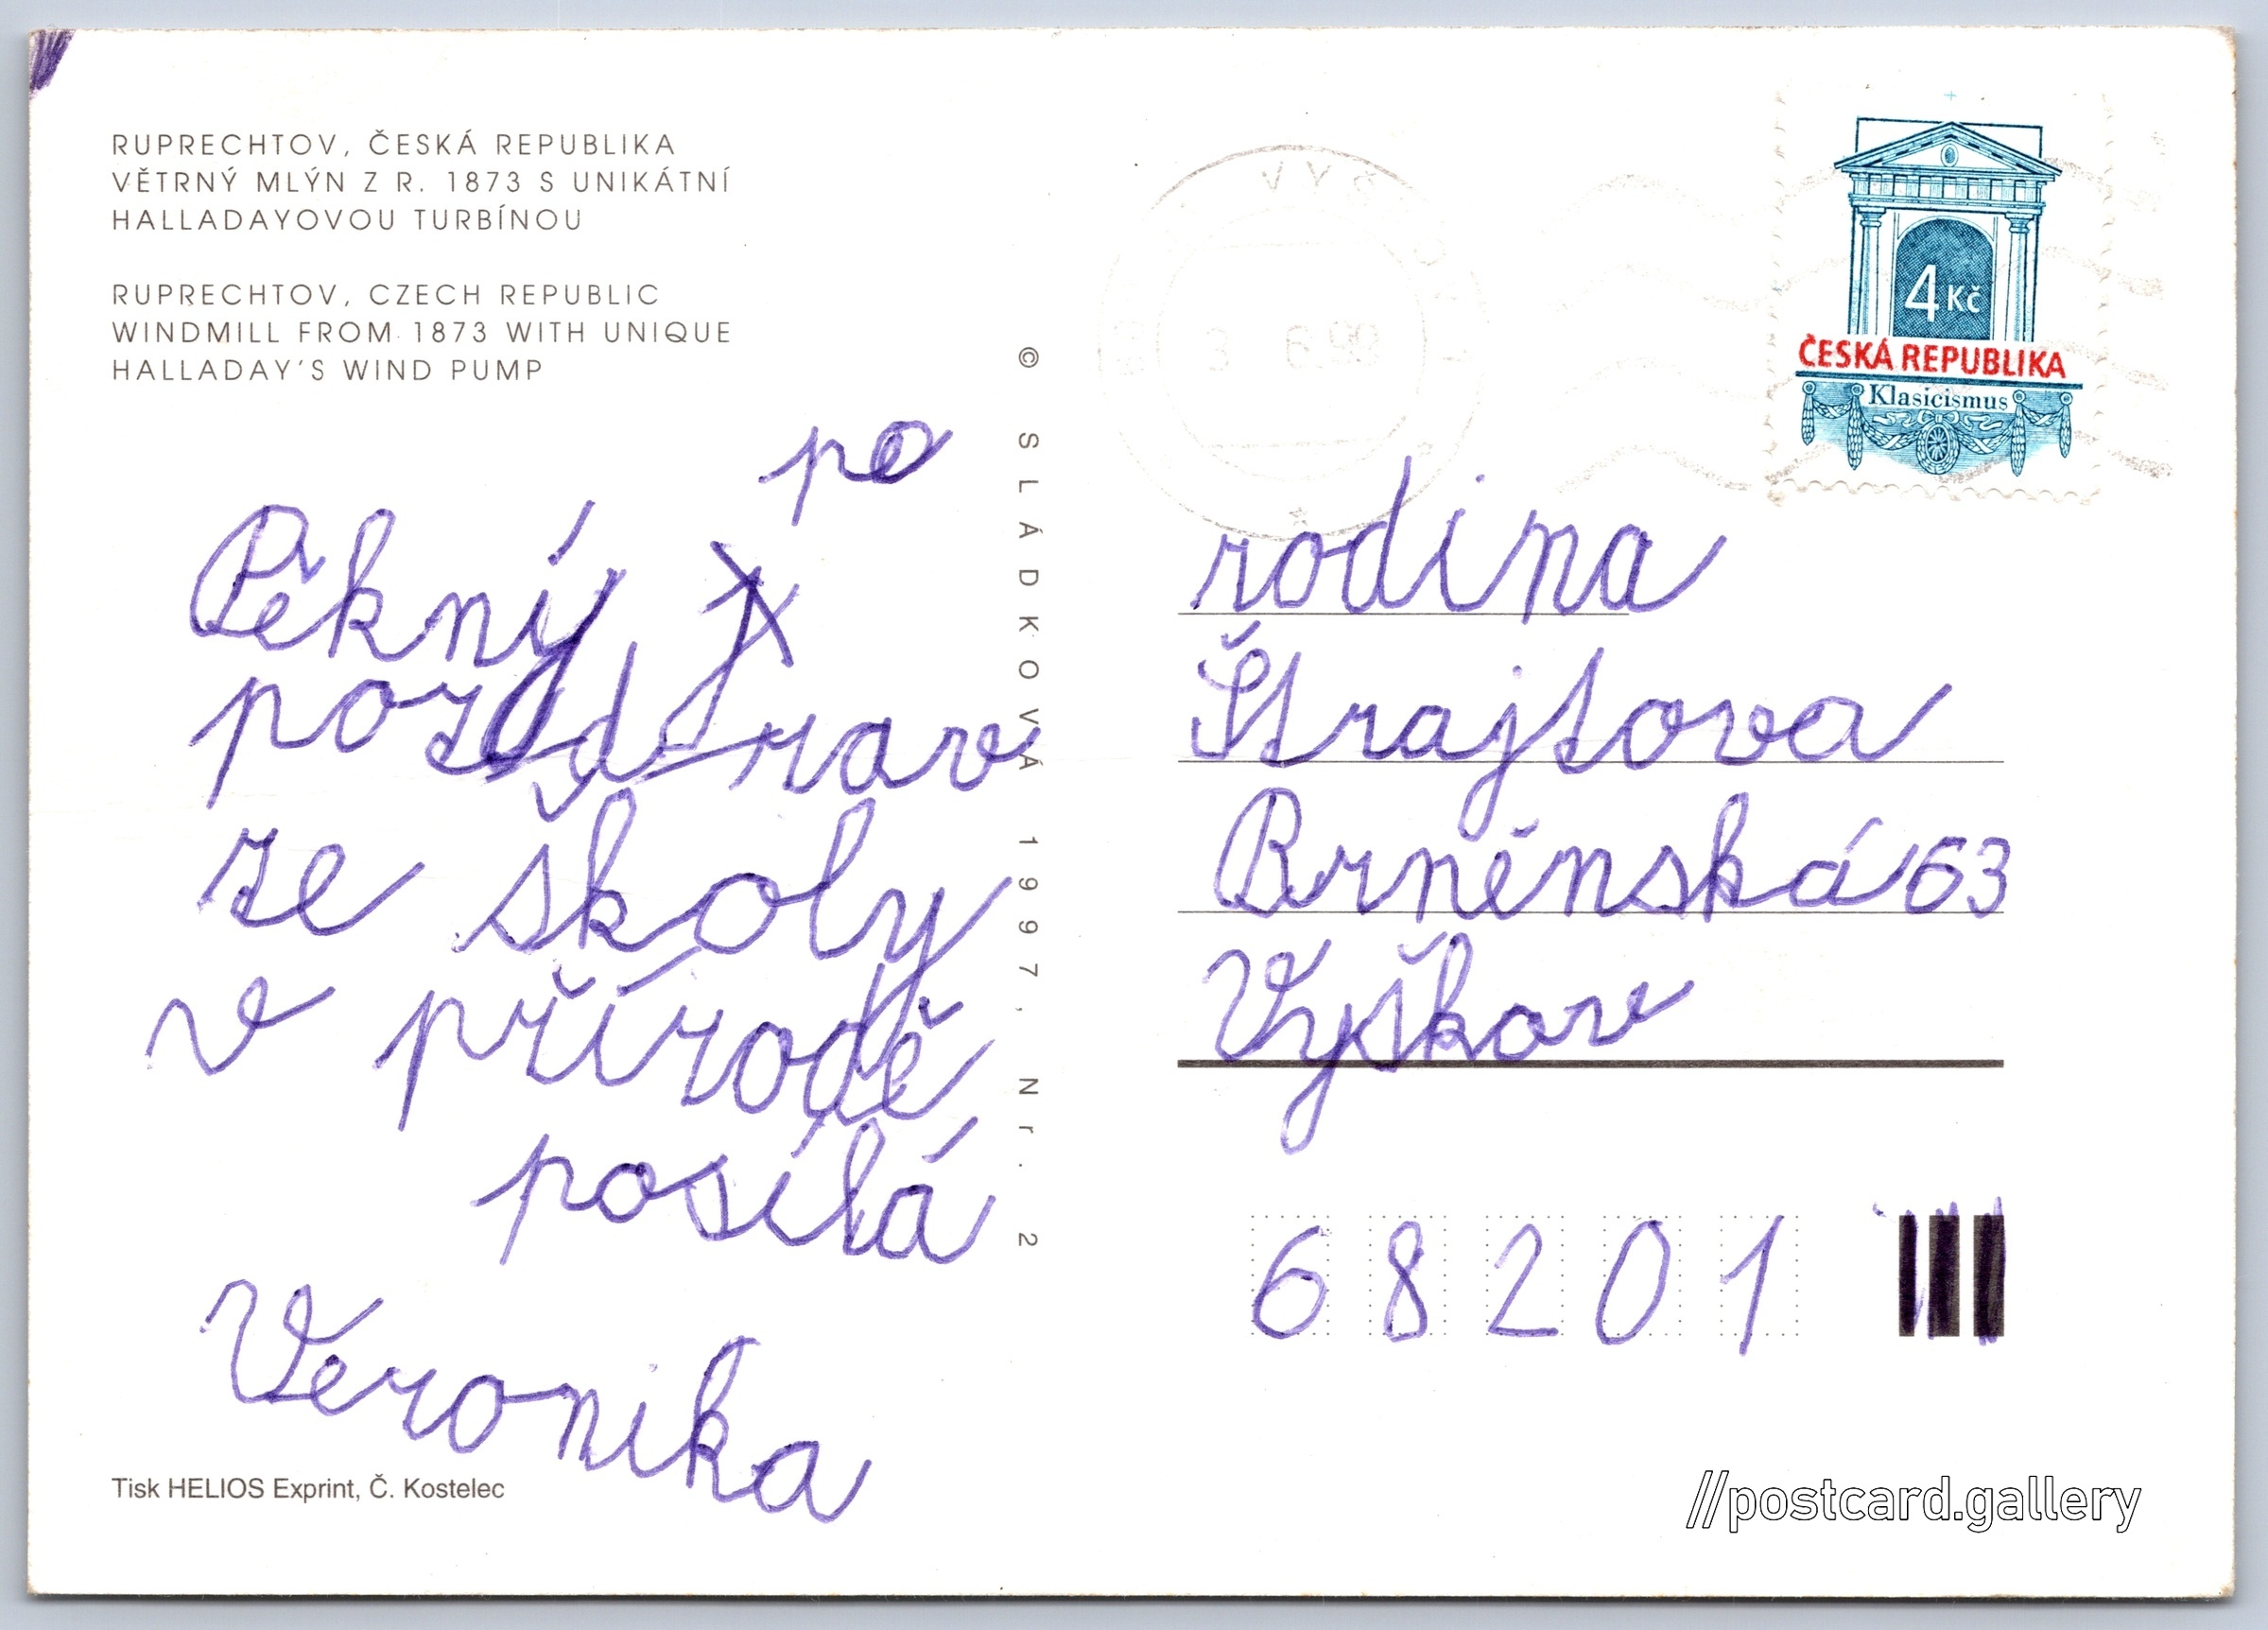 RUPRECHTOV, ČESKÁ REPUBLIKA
VĚTRNÝ MLÝN Z R. 1873 S UNIKÁTNÍ
HALLADAYOVOU TURBÍNOU
RUPRECHTOV, CZECH REPUBLIC
WINDMILL FROM 1873 WITH UNIQUE
HALLADAY'S WIND PUMP
po
Pěkný
pozdrav
ze školy
v přírodě
posílá
Veronika
Tisk HELIOS Exprint, Č. Kostelec
© SLÁDKOVÁ 1997, Nr. 2
3 6.99
4 Kč
ČESKÁ REPUBLIKA
Klasicismus
rodina
Štrajtova
Brněnská 63
Vyškov
68201
//postcard.gallery